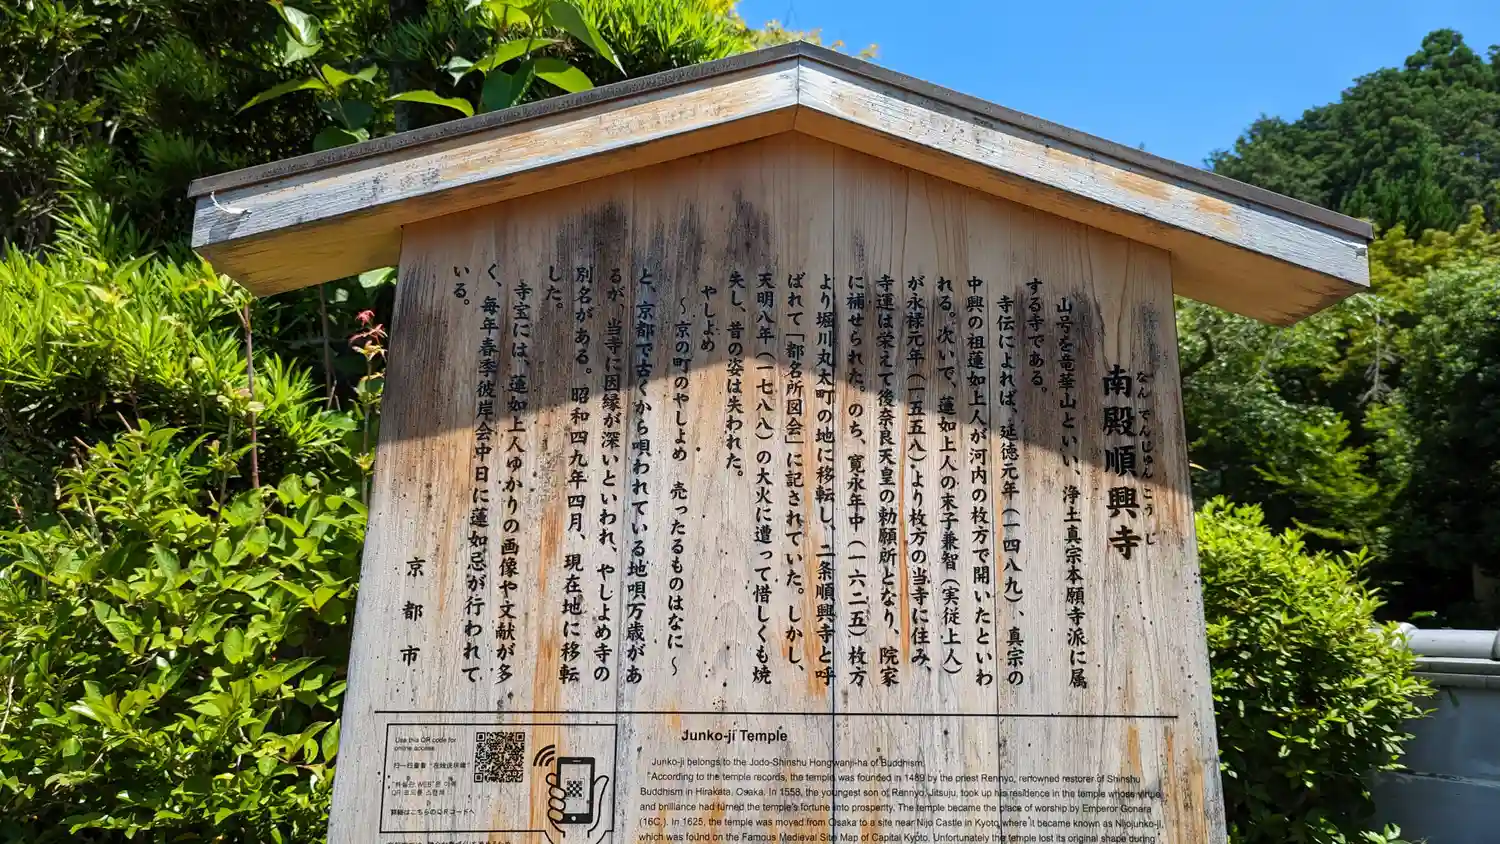 南殿順興寺
なんでんじゅんこうじ
山号を竜華山といい、浄土真宗本願寺派に属
する寺である。
寺伝によれば、延徳元年（一四八九）、真宗の
中興の祖蓮如上人が河内の枚方で開いたといわ
れる。次いで、蓮如上人の末子兼智（実従上人）
が永禄元年（一五五八）より枚方の当寺に住み、
寺運は栄えて後奈良天皇の勅願所となり、院家
に補せられた。のち、寛永年中（一六二五）枚方
より堀川丸太町の地に移転し、二条順興寺と呼
ばれて「都名所図会」に記されていた。しかし、
天明八年（一七八八）の大火に遭って惜しくも焼
失し、昔の姿は失われた。
やしよめ
～京の町のやしよめ　売ったるものはなに～
と、京都で古くから唄われている地唄万歳があ
るが、当寺に因縁が深いといわれ、やしよめ寺の
別名がある。昭和四九年四月、現在地に移転
した。
寺宝には、蓮如上人ゆかりの画像や文献が多
く、毎年春季彼岸会中日に蓮如忌が行われて
いる。
京都市
Use this QR code for
online access.
扫一扫查看“在线谈珠璣”
QR 코드를 스캔해
詳細はこちらのQRコードへ
Junko-ji Temple
Junko-ji belongs to the Jodo-Shinshu Hongwanji-ha of Buddhism.
According to the temple records, the temple was founded in 1489 by the priest Rennyo, renowned restorer of Shinshu
Buddhism in Hirakata, Osaka. In 1558, the youngest son of Rennyo, Jitsuju, took up his residence in the temple whose virtue
and brilliance had turned the temple's fortune into prosperity. The temple became the place of worship by Emperor Gonara
(16C.). In 1625, the temple was moved from Osaka to a site near Nijo Castle in Kyoto where it became known as Nijojunko-ji,
which was found on the Famous Medieval Site Map of Capital Kyoto. Unfortunately the temple lost its original shape during